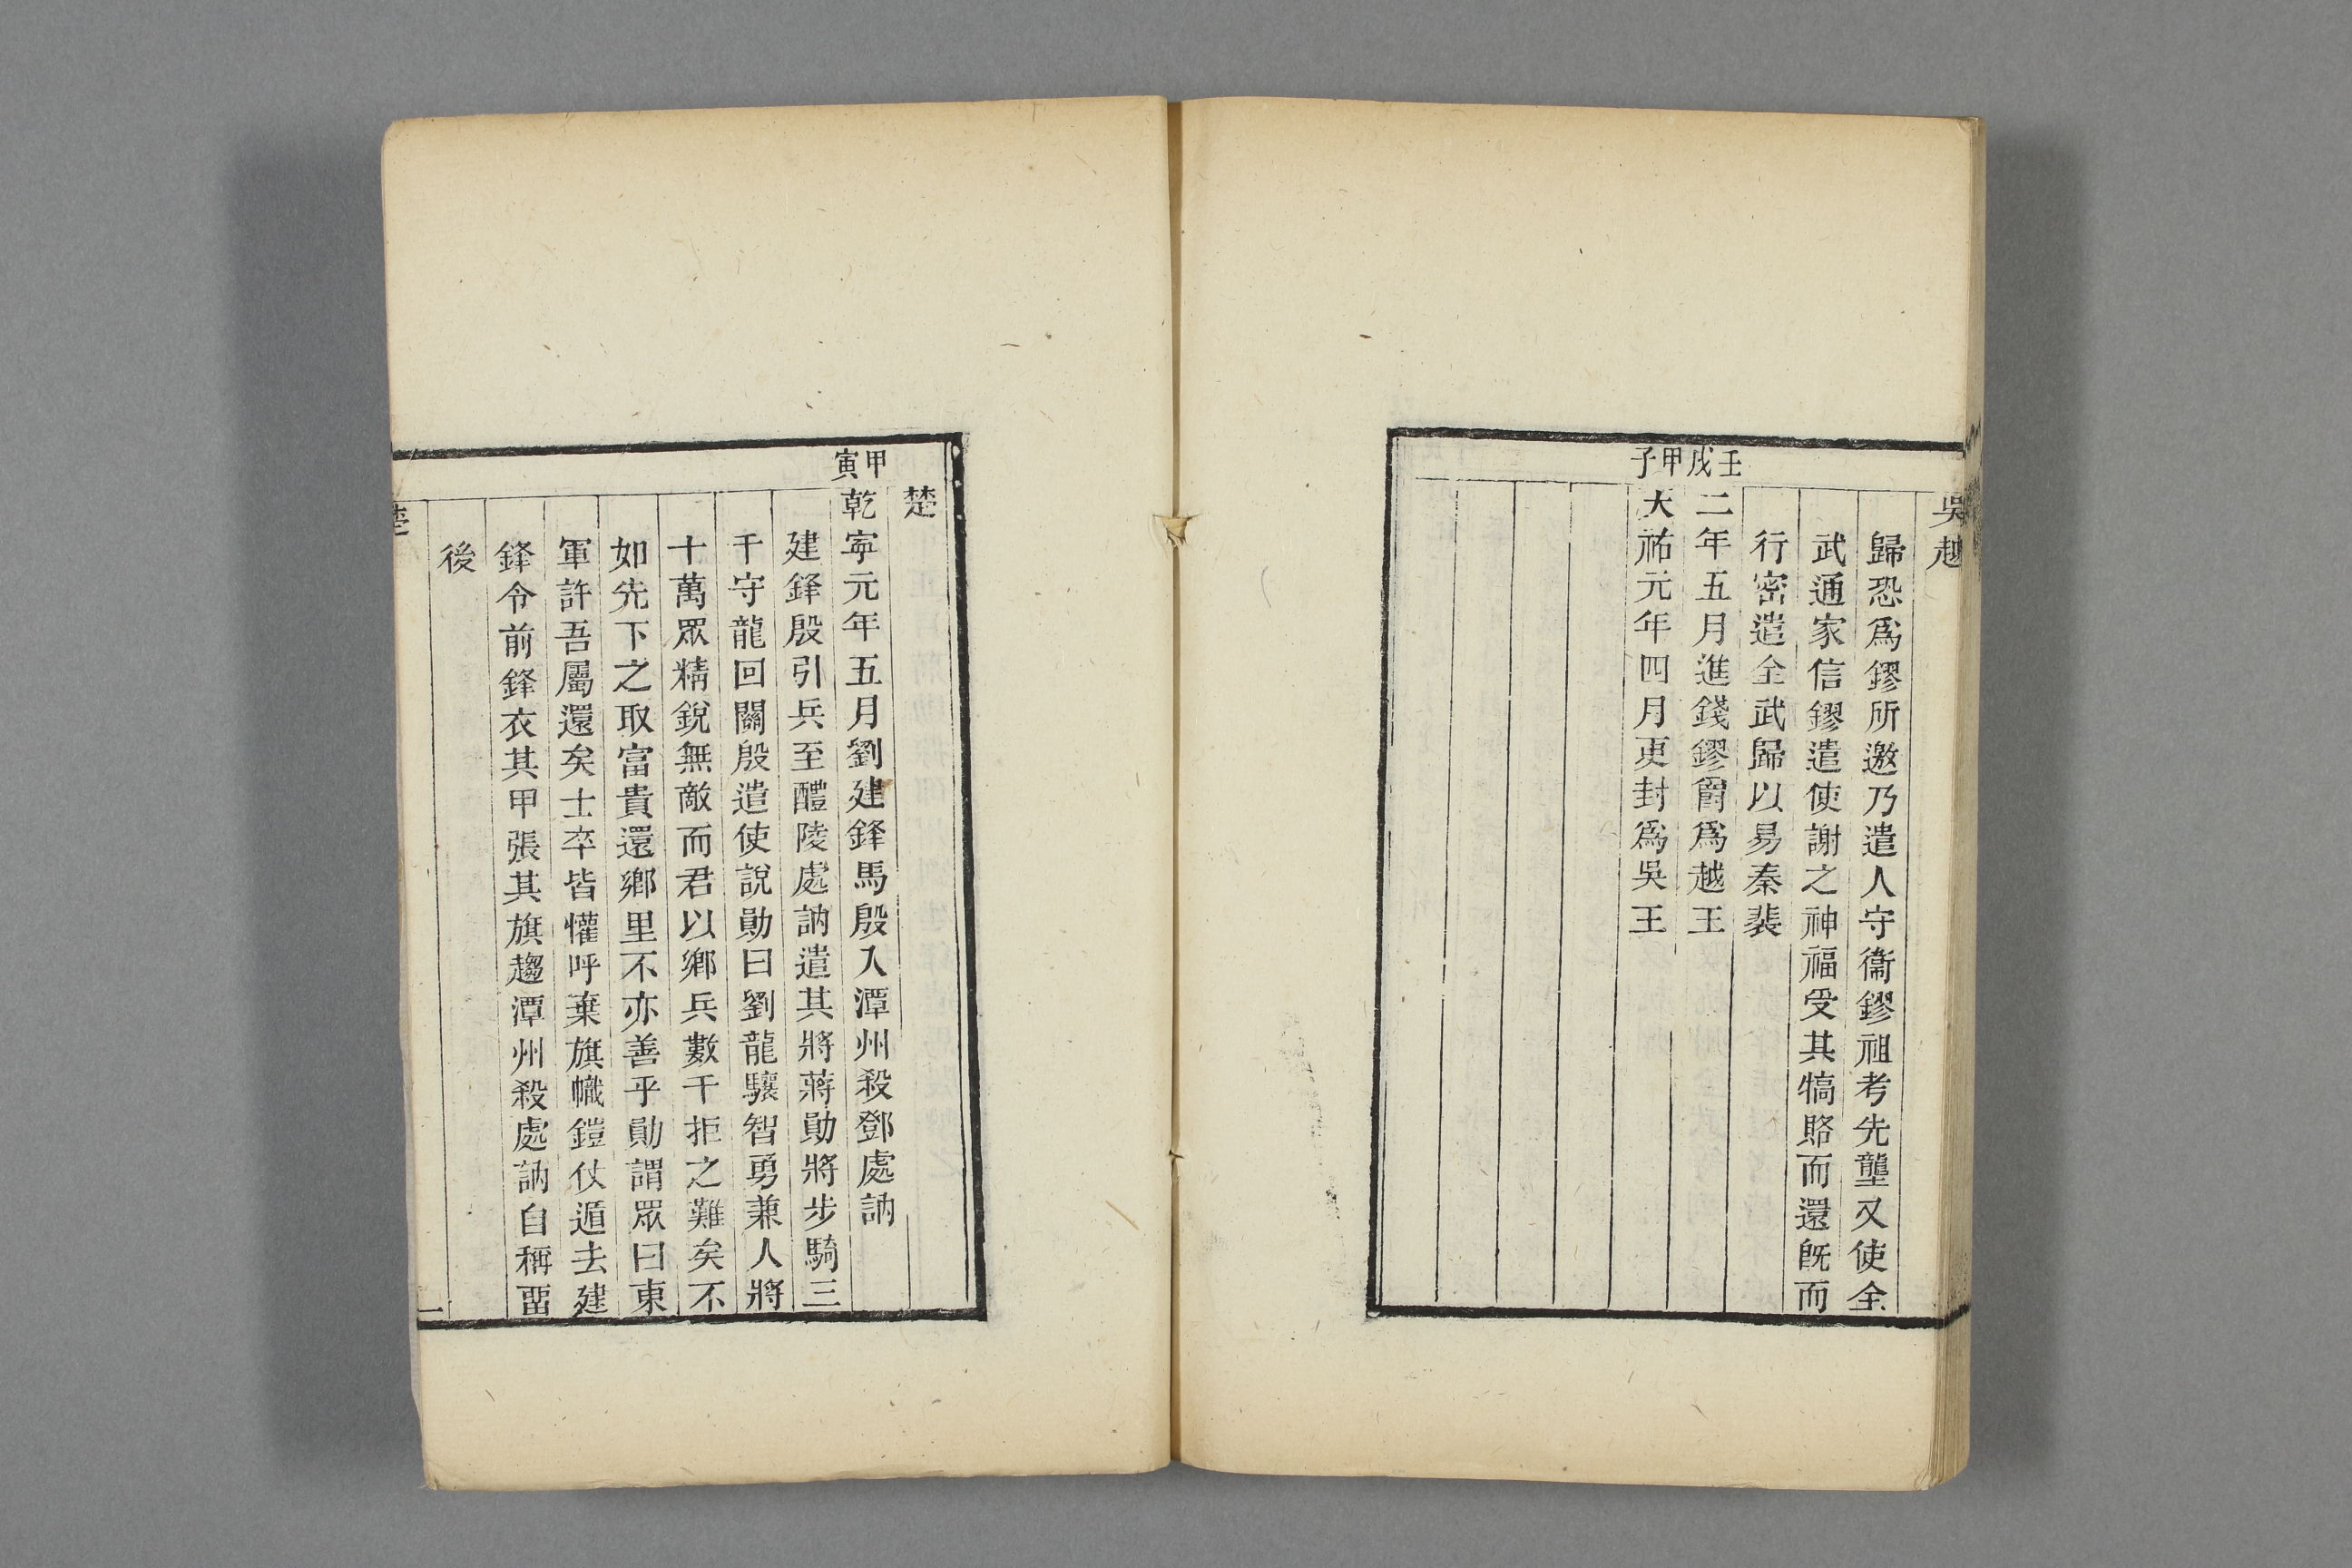 吳越
歸恐爲鏐所邀乃遣人守衞鏐祖考先壟又使全
武通家信鏐遣使謝之神福受其犒賂而還旣而
行密遣全武歸以易秦裴
壬戌
二年五月進錢鏐爵爲越王
甲子
天祐元年四月更封爲吳王
楚
甲寅
乾寧元年五月劉建鋒馬殷入潭州殺鄧處訥
建鋒殷引兵至醴陵處訥遣其將蔣勛將步騎三
千守龍回關殷遣使說勛曰劉龍驤智勇兼人將
十萬眾精銳無敵而君以鄉兵數千拒之難矣不
如先下之取富貴還鄉里不亦善乎勛謂眾曰東
軍許吾屬還矣士卒皆懽呼棄旗幟鎧仗遁去建
鋒令前鋒衣其甲張其旗趨潭州殺處訥自稱畱
後
楚
一